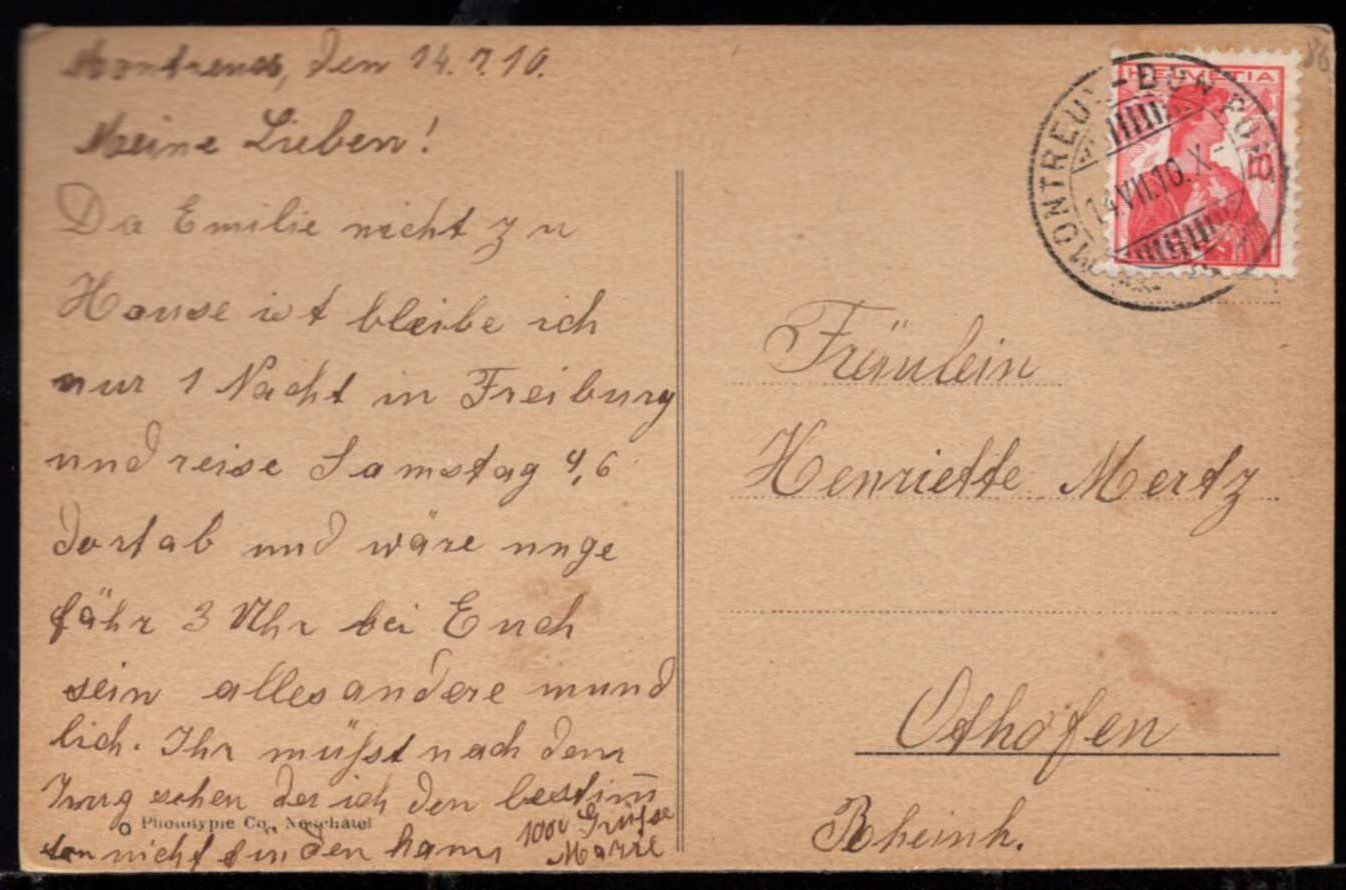 Montreux, den 14.7.10.
Meine Lieben!
Da Emilie nicht zu
Hause ist bleibe ich
nur 1 Nacht in Freiburg
und reise Samstag 4,6
dort ab und wäre unge
fähr 3 Uhr bei Euch
sein alles andere münd
lich. Ihr müßt nach dem
Zug sehen der ich den bestim̅
ten nicht finden kann
1000 Grüße
Marie
Phototypie Co., Neuchâtel
HELVETIA
10
MONTREUX-BON PORT
14.VII.10.X
86
Fräulein
Henriette Mertz
Osthofen
Rheinh.